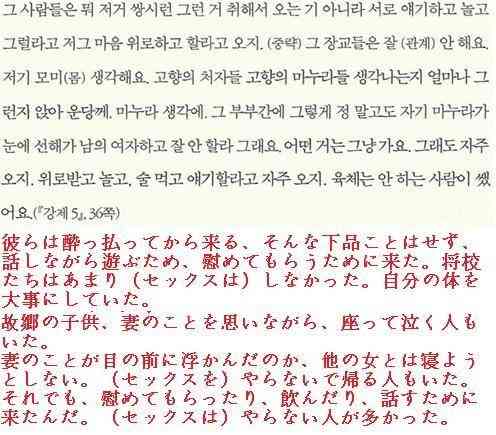 그 사람들은 뭐 저거 쌍시런 그런 거 취해서 오는 기 아니라 서로 얘기하고 놀고
그럴라고 저그 마음 위로하고 할라고 오지. (중략) 그 장교들은 잘 (관계) 안 해요.
저기 모미(몸) 생각해요. 고향의 처자들 고향의 마누라들 생각나는지 얼마나 그
런지 앉아 운당께. 마누라 생각에. 그 부부간에 그렇게 정 말고도 자기 마누라가
눈에 선해가 남의 여자하고 잘 안 할라 그래요. 어떤 거는 그냥 가요. 그래도 자주
오지. 위로받고 놀고, 술 먹고 얘기할라고 자주 오지. 육체는 안 하는 사람이 쌨
어요.(『강제 5』, 36쪽)
彼らは酔っ払ってから来る、そんな下品ことはせず、
話しながら遊ぶため、慰めてもらうために来た。将校
たちはあまり（セックスは）しなかった。自分の体を
大事にしていた。
故郷の子供、妻のことを思いながら、座って泣く人も
いた。
妻のことが目の前に浮かんだのか、他の女とは寝よう
としない。（セックスを）やらないで帰る人もいた。
それでも、慰めてもらったり、飲んだり、話すために
来たんだ。（セックスは）やらない人が多かった。